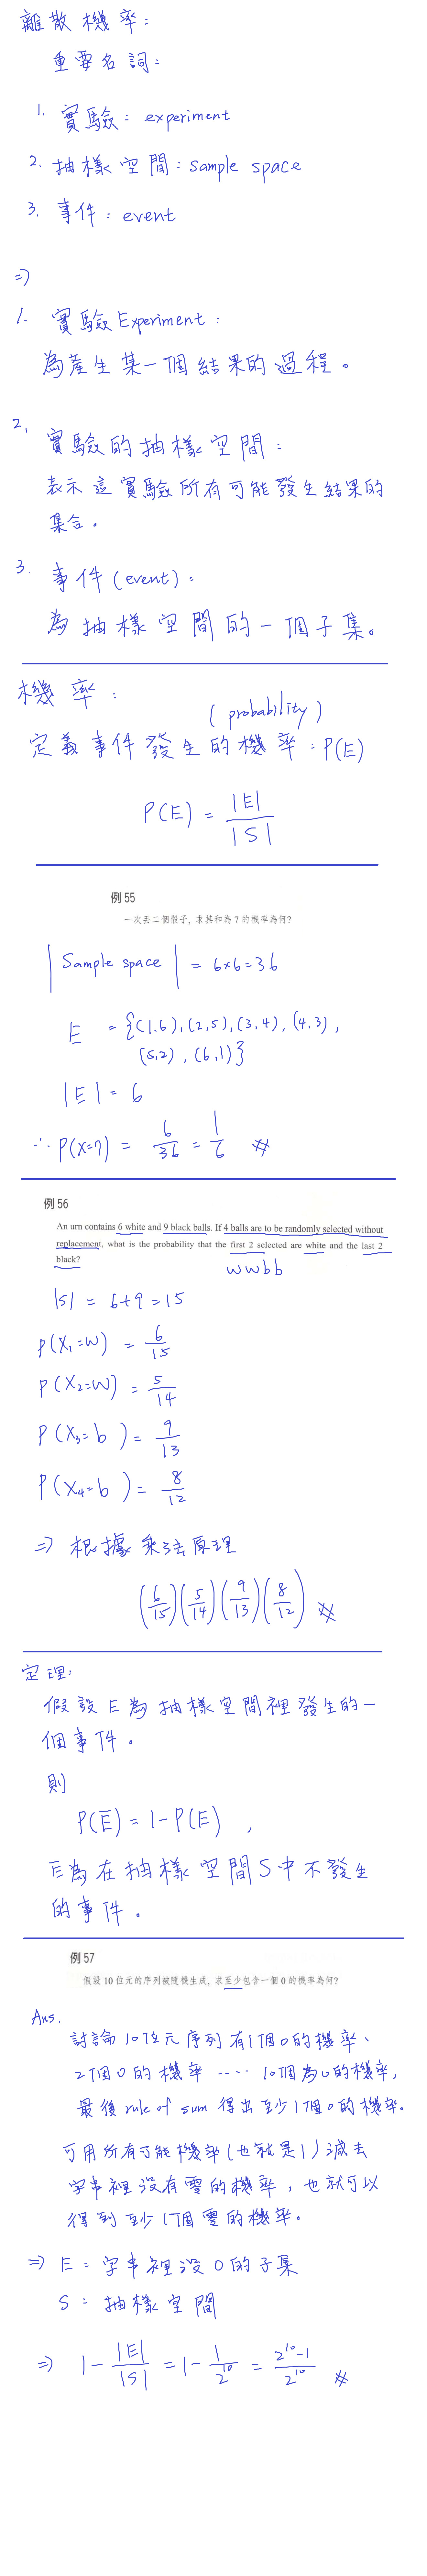 離散機率:
重要名詞:
1. 實驗: experiment
2. 抽樣空間: sample space
3. 事件: event
⇒
1. 實驗 Experiment:
為產生某一個結果的過程。
2. 實驗的抽樣空間:
表示這實驗所有可能發生結果的
集合。
3 事件(event):
為抽樣空間的一個子集。
機率:
(probability)
定義事件發生的機率: P(E)
P(E) = |E| / |S|
例 55
一次丟二個骰子, 求其和為 7 的機率為何?
| Sample space | = 6×6=36
E = {(1,6), (2,5), (3,4), (4,3),
(5,2), (6,1)}
|E| = 6
∴ P(X=7) = 6/36 = 1/6 ※
例 56
An urn contains 6 white and 9 black balls. If 4 balls are to be randomly selected without
replacement, what is the probability that the first 2 selected are white and the last 2
black?
wwbb
|S| = 6+9=15
P(X₁=W) = 6/15
P(X₂=W) = 5/14
P(X₃=b) = 9/13
P(X₄=b) = 8/12
⇒ 根據乘法原理
(6/15)(5/14)(9/13)(8/12) ※
定理:
假設E為抽樣空間裡發生的一
個事件。
則
P(E̅) = 1-P(E) ,
E̅為在抽樣空間S中不發生
的事件。
例 57
假設 10 位元的序列被隨機生成, 求至少包含一個 0 的機率為何?
Ans.
討論10位元序列有1個0的機率、
2個0的機率 ‥‥ 10個為0的機率,
最後 rule of sum 得出至少1個0的機率.
可用所有可能機率(也就是1)減去
字串裡沒有零的機率, 也就可以
得到至少1個零的機率。
⇒ E: 字串裡沒0的子集
S: 抽樣空間
⇒ 1 - |E|/|S| = 1 - 1/2¹⁰ = (2¹⁰-1)/2¹⁰ ※